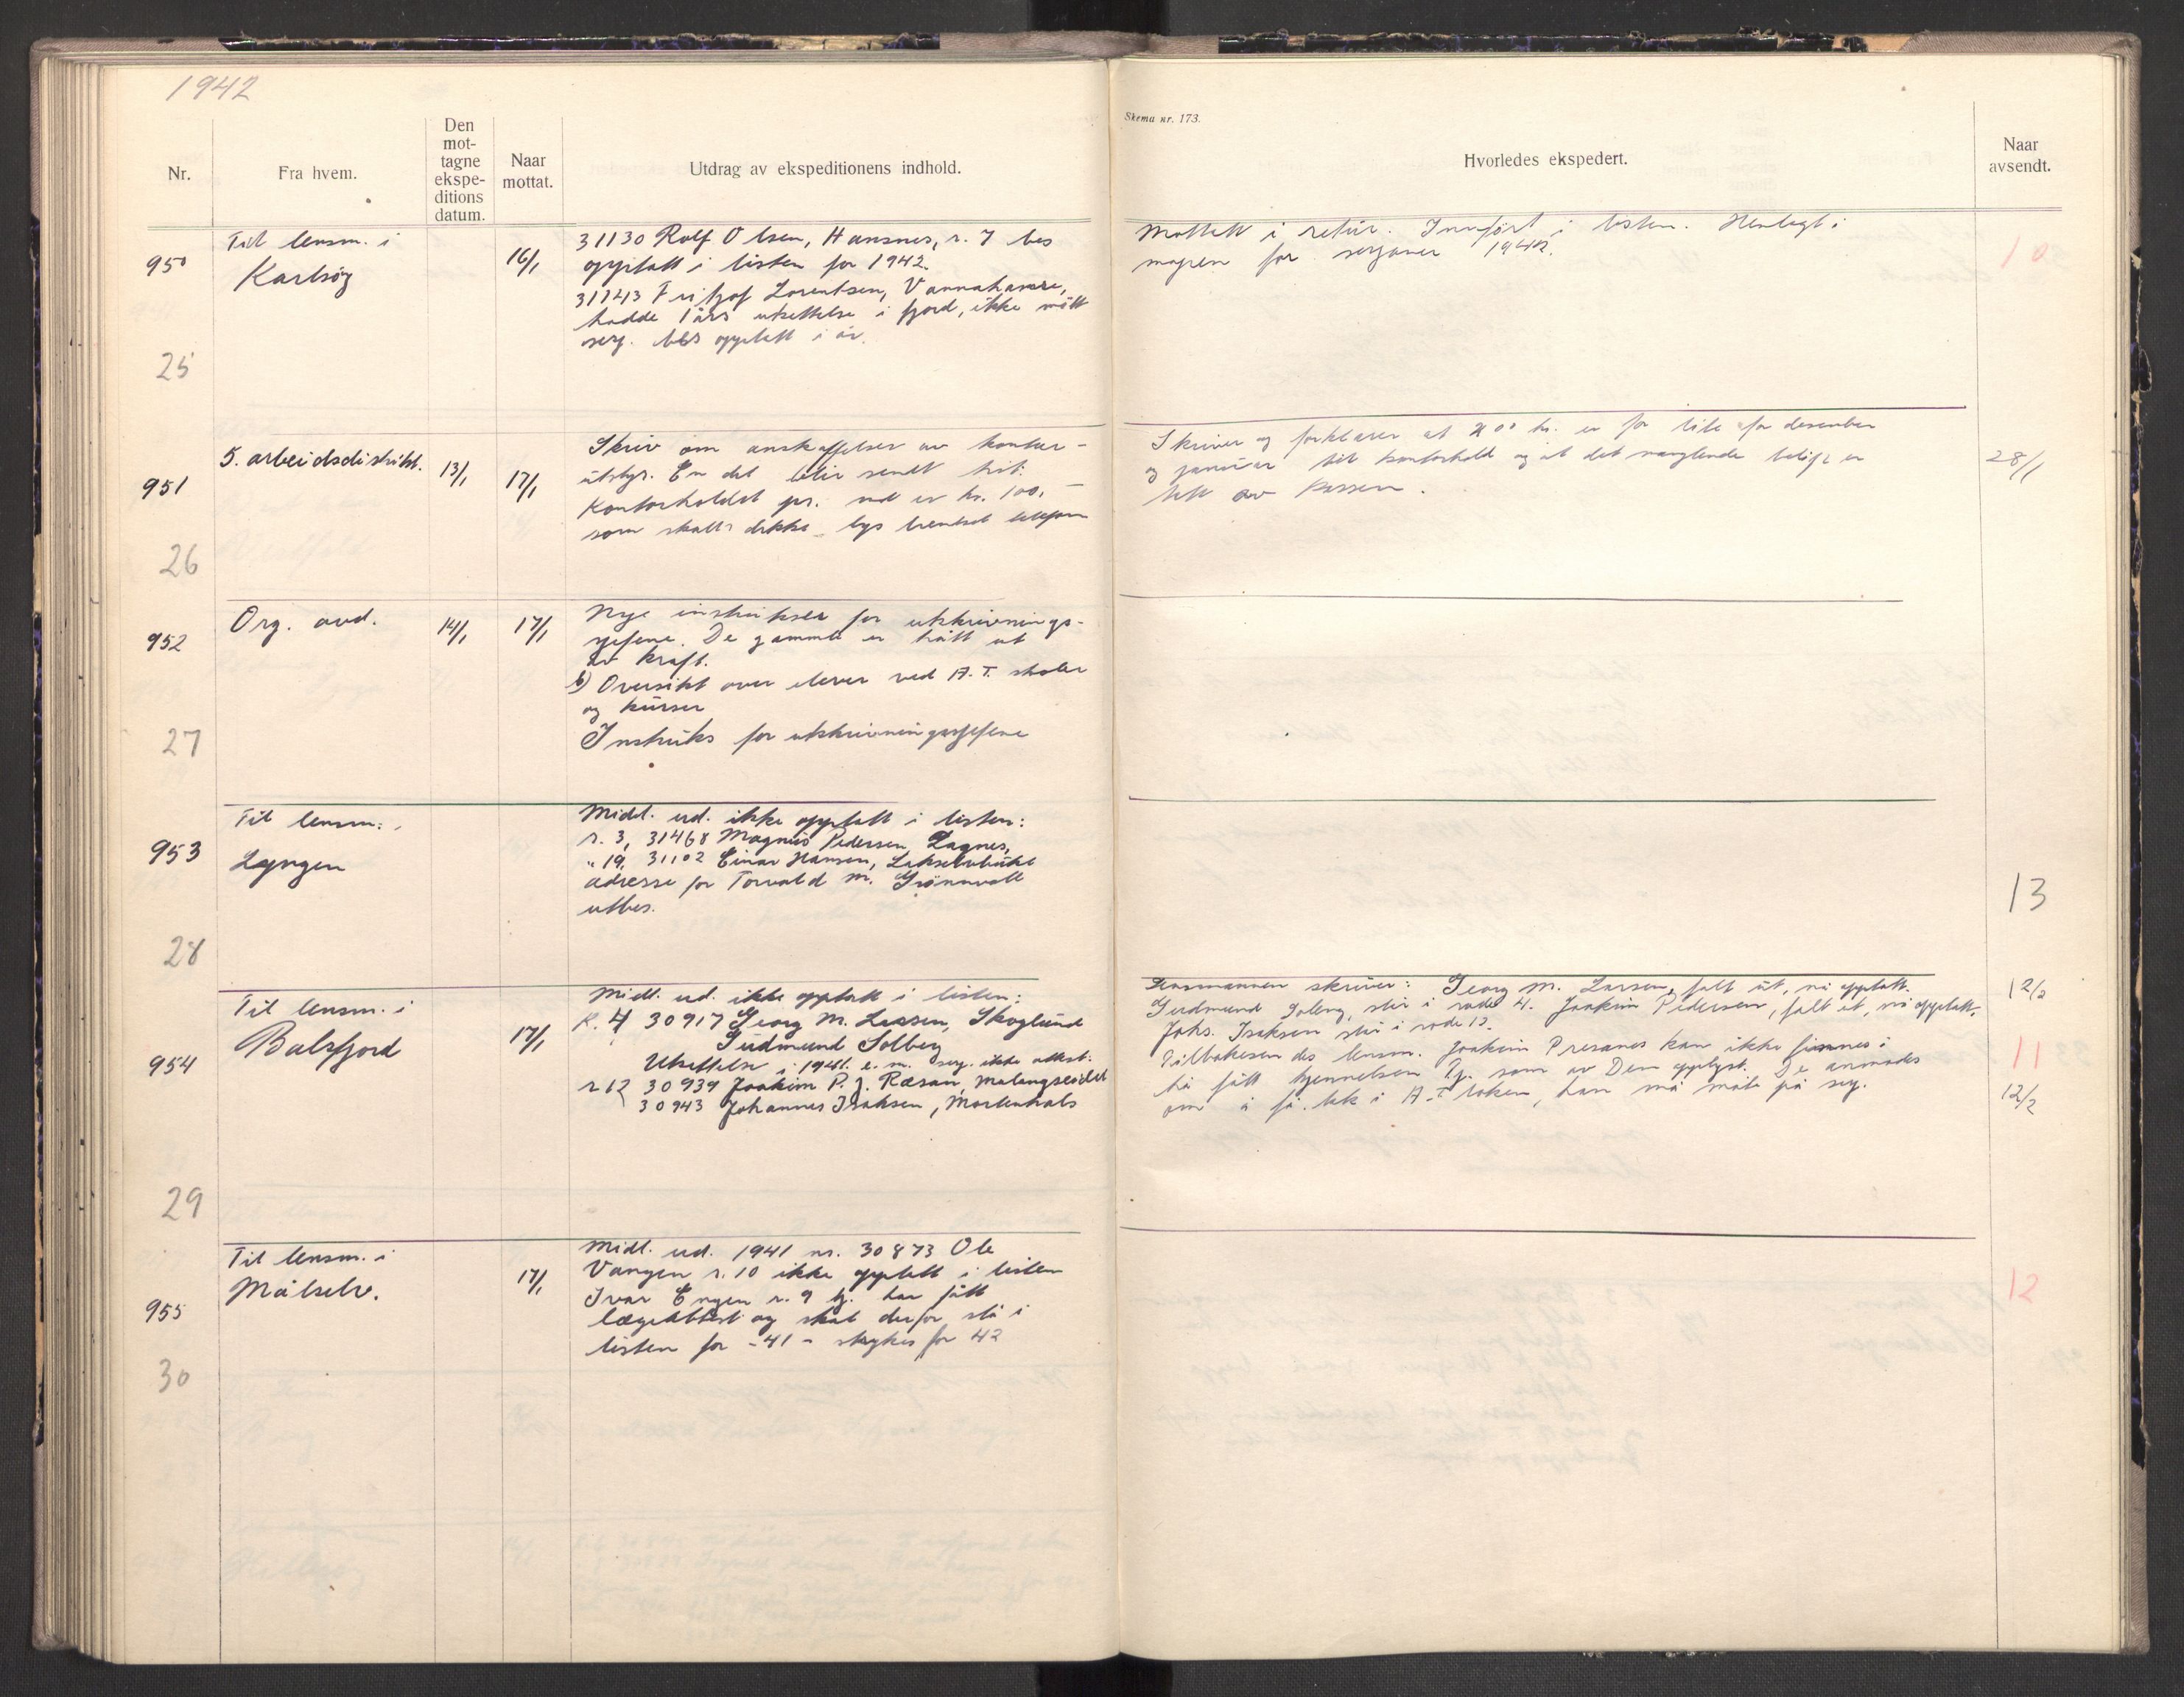 1942
Skema nr. 173.
Nr.
Fra hvem.
Den
mot-
tagne
ekspe-
ditions
datum.
Naar
mottat.
Utdrag av ekspeditionens indhold.
Hvorledes ekspedert.
Naar
avsendt.
950
25
Til lensm. i
Karlsöy
16/1
31130 Rolf Olsen, Hansnes, r. 7 bes
opptatt i listen for 1942.
31143 Fritjof Lorentsen, Vannahavre,
hadde 1 års utsettelse i fjord, ikke mött
serg. bes opptatt i år.
Mottatt i retur. Innfört i listen. Henlagt i
mappen for sesjoner 1942.
10
951
26
5. arbeidsdistrikt.
13/1
17/1
Skriv om anskaffelser av kontor-
utstyr. En del blir sendt hit.
Kontorholdet pr. md er kr. 100,-
som skal dekke lys brensel telefon
Skriver og forklarer at 200 kr. er for lite for desember
og januar til kontorhold og at det manglende belöp er
tatt av kassen.
28/1
952
27
Org. avd.
14/1
17/1
Nye instrukser for utskrivnings-
sjefene. De gamle er trått ut
av kraft.
b) Oversikt over elever ved A.T. skoler
og kurser
Instruks for utskrivningssjefene
953
28
Til lensm.
Lyngen
Midl. ud. ikke opptatt i listen:
r. 3, 31468 Magnus Pedersen, Lagnes,
" 19, 31102 Einar Hansen, Lakselvbukt
adresse for Torvald M. Grönnvoll
utbes.
13
954
29
Til lensm. i
Balsfjord
17/1
Midl. ud. ikke opptatt i listen:
R. 4 30917 Georg M. Larsen, Skoglund
Gudmund Solberg
Utsettelse i 1941. e. m. serg. ikke attest.
r 12 30939 Joakim P. J. Ræsan, Malangseidet
30943 Johannes Isaksen, Mortenhals
Lensmannen skriver: Georg M. Larsen, falt ut, nå opptatt.
Gudmund Solberg, står i rode 4. Joakim Pedersen, falt ut, nå opptatt.
Johs. Isaksen står i rode 12.
Tilbakesendes lensm. Joakim Presanes kan ikke finnes i
å ha fått kjennelsen Tj. som av Dem opplyst. De anmodes
om å få kk i A-T boken, han må möte på serg.
12/2
11
12/2
955
30
Til lensm. i
Målselv.
17/1
Midl. ud. 1941 nr. 30873 Ole
Vangen r. 10 ikke opptatt i listen
Ivar Engen r. 9 tj. har fått
lægeattest og skal derfor stå i
listen for -41 - strykes for 42
12